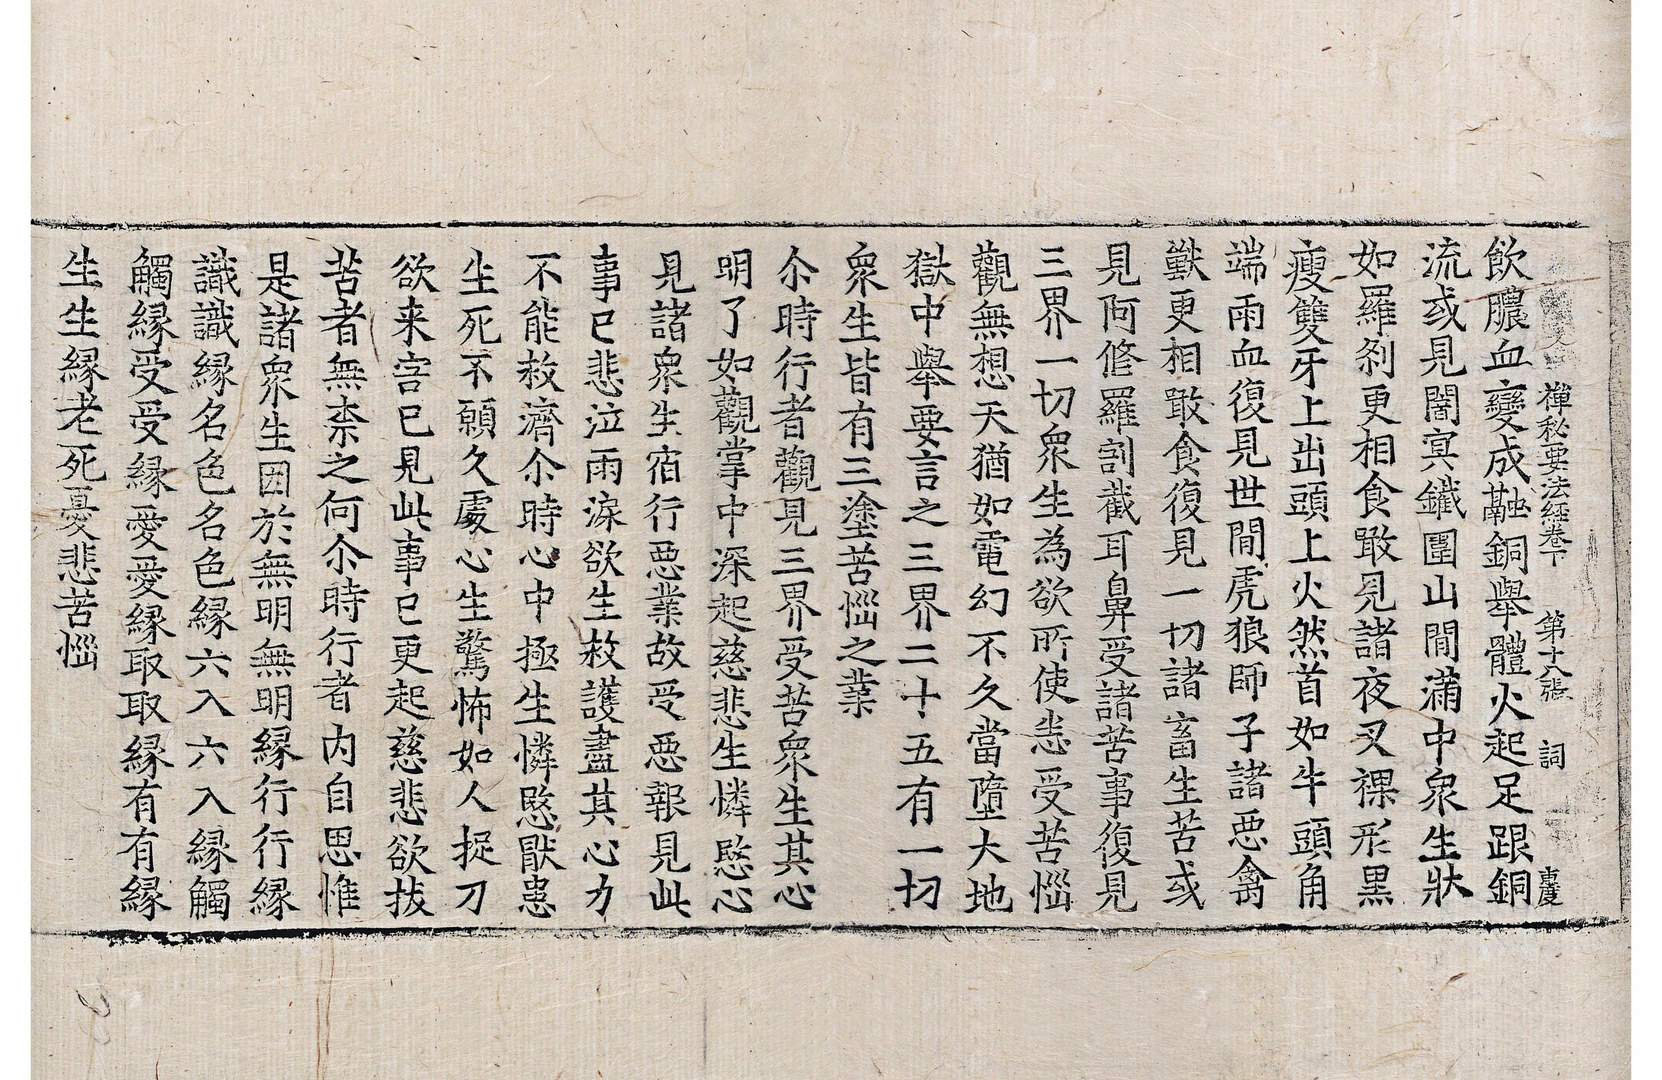 禪秘要法経卷下 第十八張 詞
飲膿血變成融銅舉體火起足跟銅
流或見闇冥鐵圍山間滿中衆生狀
如羅刹更相食噉見諸夜叉裸形黒
瘦雙牙上出頭上火然首如牛頭角
端雨血復見世間虎狼師子諸惡禽
獸更相噉食復見一切諸畜生苦或
見阿修羅割截耳鼻受諸苦事復見
三界一切衆生為欲所使恚受苦惱
觀無想天猶如電幻不久當墮大地
獄中舉要言之三界二十五有一切
衆生皆有三塗苦惱之業
尒時行者觀見三界受苦衆生其心
明了如觀掌中深起慈悲生憐愍心
見諸衆生宿行惡業故受惡報見此
事已悲泣雨淚欲生救護盡其心力
不能救濟尒時心中極生憐愍猒患
生死不願久處心生驚怖如人捉刀
欲来害已見此事已更起慈悲欲拔
苦者無柰之何尒時行者內自思惟
是諸衆生因於無明無明縁行行縁
識識縁名色名色縁六入六入縁觸
觸縁受受縁愛愛縁取取縁有有縁
生生縁老死憂悲苦惱